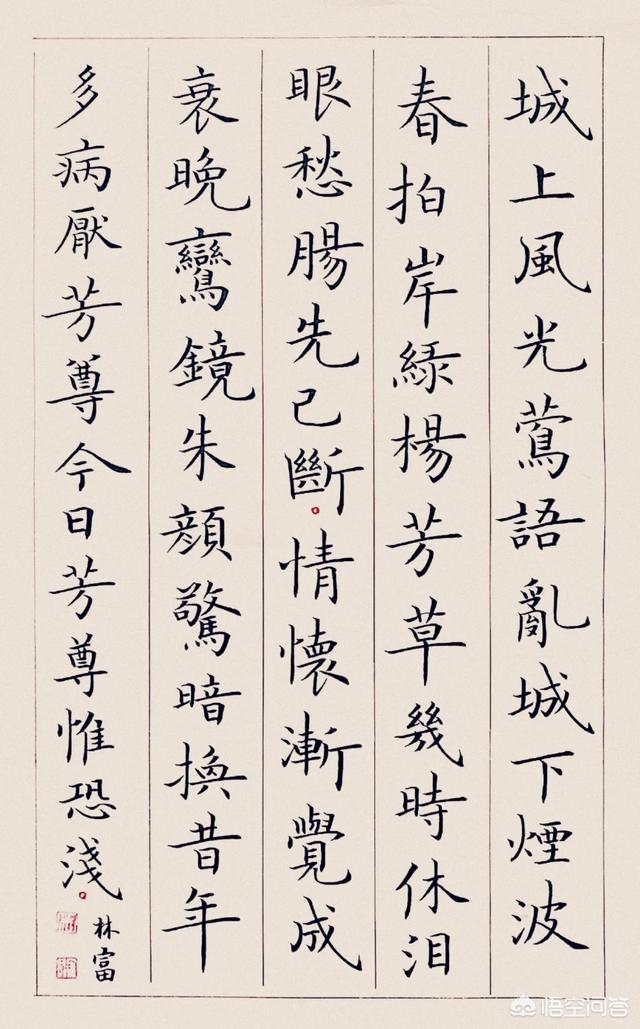 城上風光鶯語亂城下煙波
春拍岸緑楊芳草幾時休泪
眼愁腸先已斷情懷漸覺成
衰晚鸞鏡朱顔驚暗換昔年
多病厭芳尊今日芳尊惟恐淺
林富
悟空问答